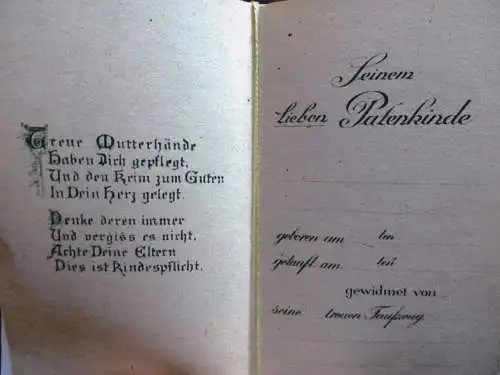 Treue Mutterhände
Haben Dich gepflegt,
Und den Keim zum Guten
In Dein Herz gelegt.
Denke deren immer
Und vergiss es nicht,
Achte Deine Eltern
Dies ist Kindespflicht.
Seinem
lieben Patenkinde
geboren am ten
getauft am ten
gewidmet von
seine treuen Taufzeug